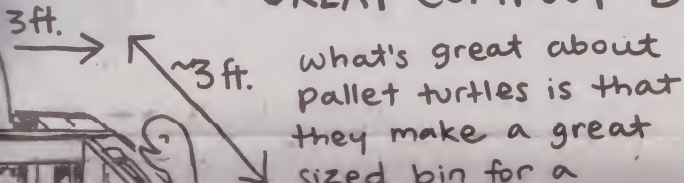 3ft.
~3 ft.
what's great about
pallet turtles is that
they make a great
sized bin for a